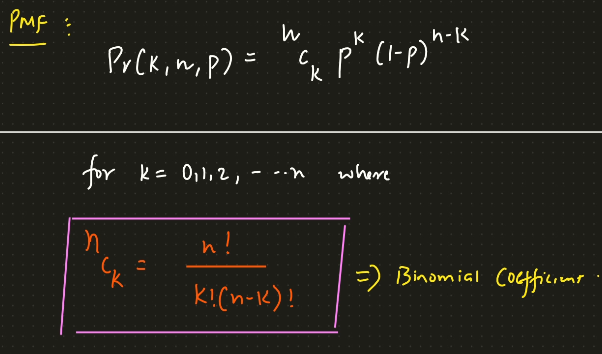 PMF :
Pr(k, n, p) = ⁿCₖ pᵏ (1-p)ⁿ⁻ᵏ
for k = 0,1,2, - ...n where
ⁿCₖ = n! / k!(n-k)! => Binomial Coefficient .